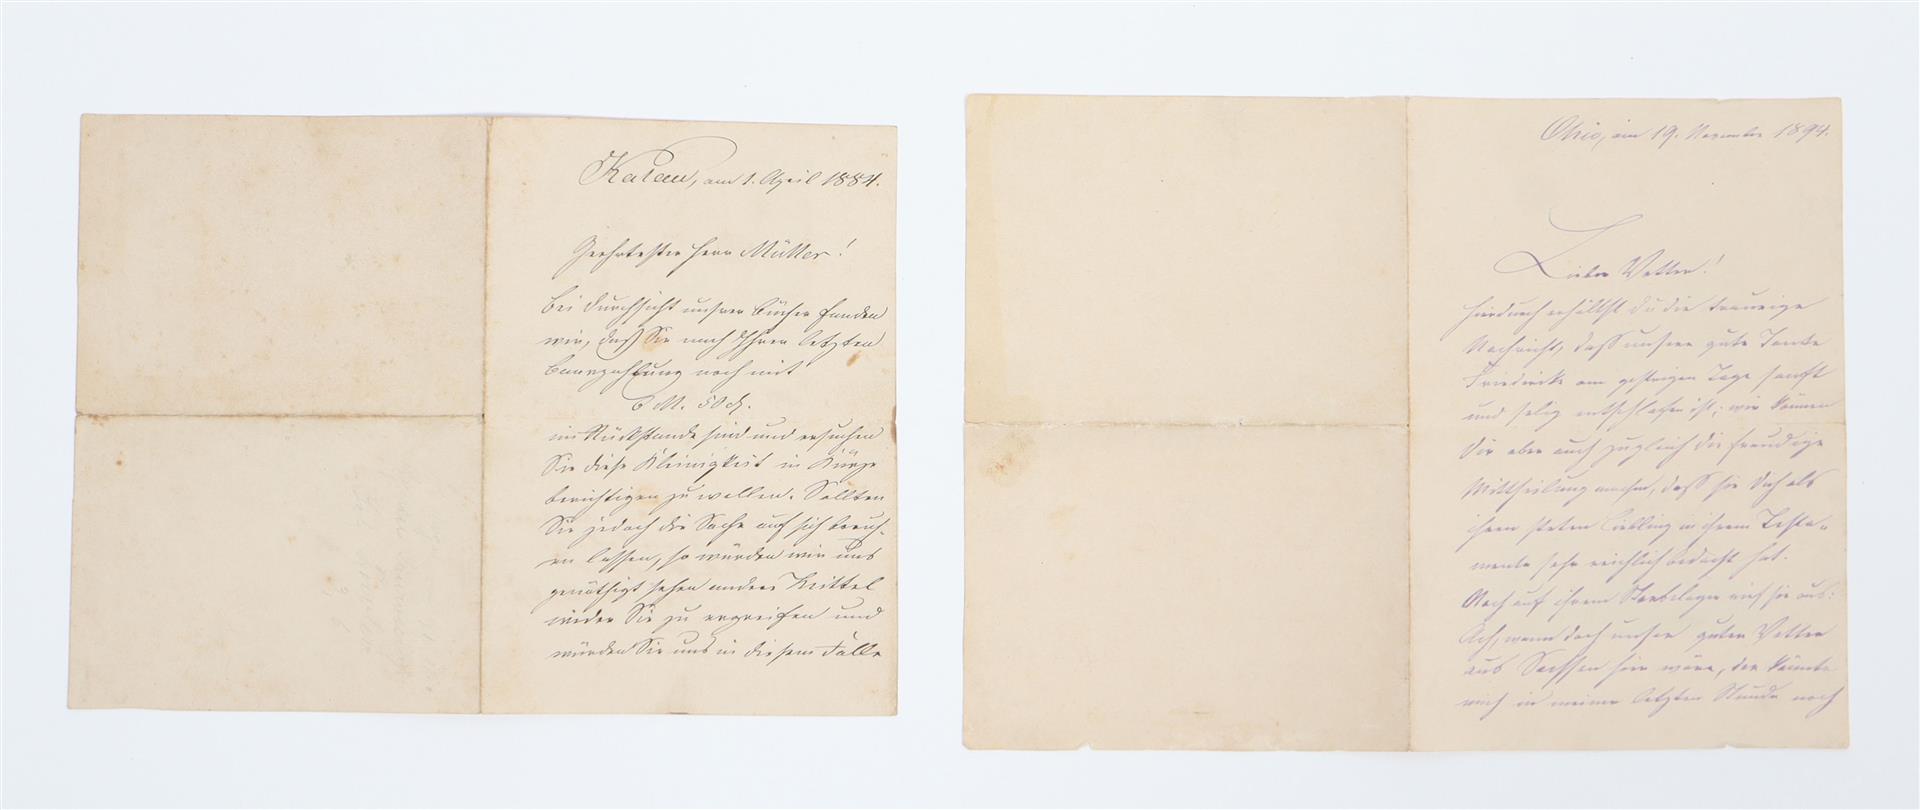 Kalau, am 1. April 1884.
Geehrtester Herr Müller!
Bei Durchsicht unsrer Bücher fanden
wir, daß Sie nach Ihrer letzten
Baarzahlung noch mit
6 M. 50 ₰.
im Rückstande sind und ersuchen
Sie diese Kleinigkeit in Kürze
berichtigen zu wollen. Sollten
Sie jedoch die Sache auf sich beruh-
en lassen, so würden wir uns
genöthigt sehen andere Mittel
wider Sie zu ergreifen und
würden Sie uns in diesem Falle
Ohio, am 19. November 1894.
Lieber Vetter!
Hierdurch erhältst du die traurige
Nachricht, dass unsere gute Tante
Friedricke am gestrigen Tage sanft
und selig entschlafen ist; wir können
Dir aber auch zugleich die freudige
Mittheilung machen, dass sie Dich als
ihren steten Liebling in ihrem Testa-
mente sehr reichlich bedacht hat.
Noch auf ihrem Sterbelager rief sie aus:
Ach, wenn doch unser guter Vetter
aus Sachsen hier wäre, der könnte
mich in meiner letzten Stunde noch